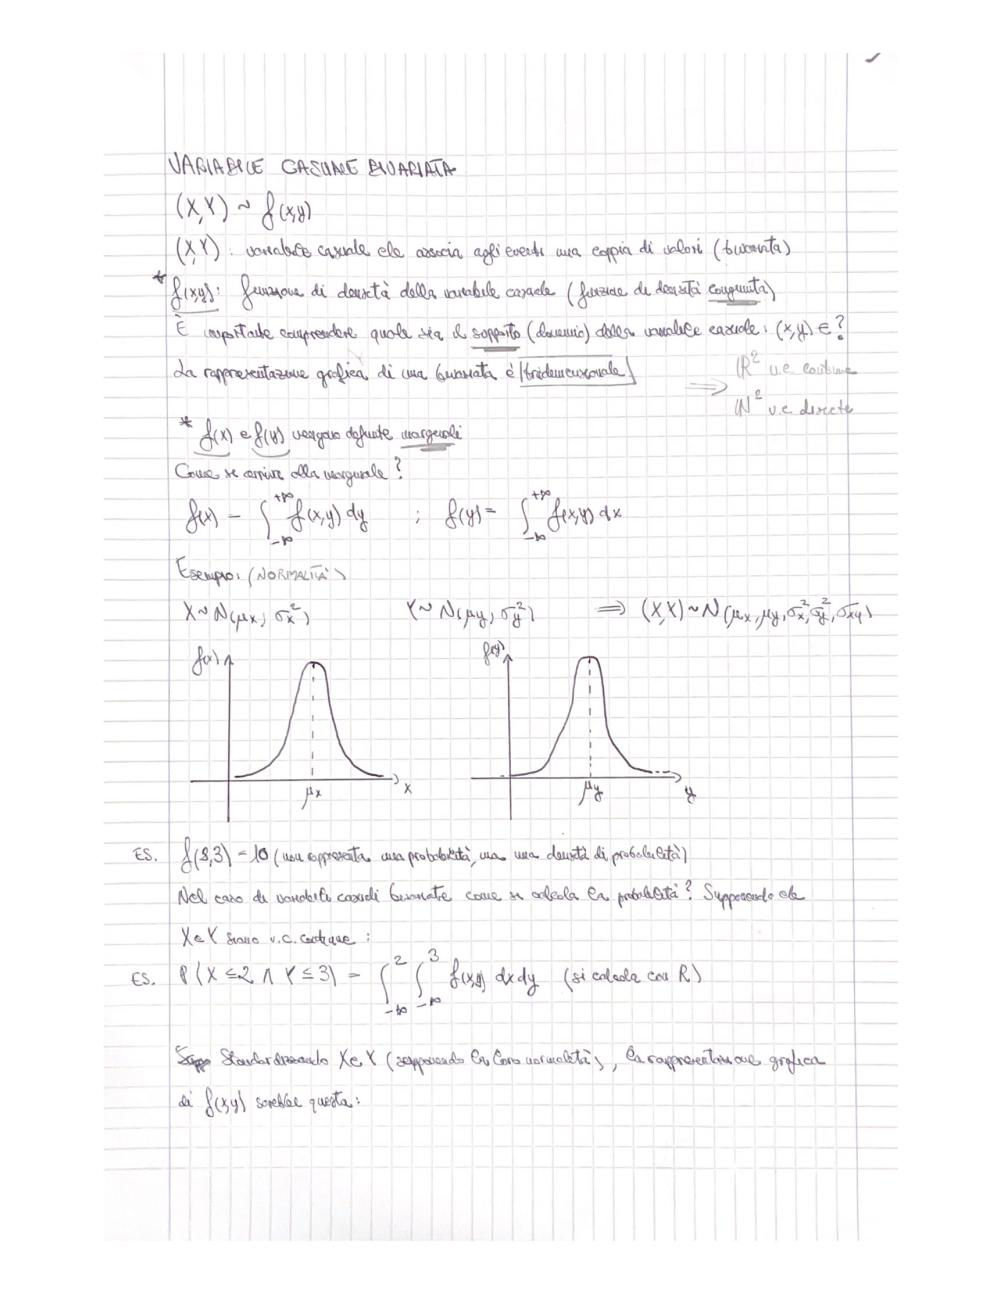 VARIABILE CASUALE BIVARIATA
(X,Y) ~ f(x,y)
(X,Y) : variabile casuale che associa agli eventi una coppia di valori (bivariata)
* f(x,y): funzione di densità della variabile casuale (funzione di densità congiunta)
È importante comprendere quale sia il supporto (dominio) della variabile casuale: (x,y) ∈ ?
La rappresentazione grafica di una bivariata è tridimensionale
⇒ ℝ² v.c continue
ℕ² v.c discrete
* f(x) e f(y) vengono definite marginali
Come si arriva alla marginale?
f(x) = ∫_{-∞}^{+∞} f(x,y) dy ; f(y) = ∫_{-∞}^{+∞} f(x,y) dx
Esempio: (NORMALITÀ)
X~N(μx; σx²) Y~N(μy; σy²) ⇒ (X,Y)~N(μx, μy, σx², σy², σxy)
f(x) f(y)
μx x μy y
ES. f(8,3) = 10 (non rappresenta una probabilità, ma una densità di probabilità)
Nel caso di variabili casuali bivariate come si calcola la probabilità? Supponendo che
X e Y siano v.c. continue :
ES. P(X ≤ 2 ∩ Y ≤ 3) = ∫_{-∞}^{2} ∫_{-∞}^{3} f(x,y) dx dy (si calcola con R)
Standardizzando X e Y (supponendo la loro normalità), la rappresentazione grafica
di f(x,y) sarebbe questa: